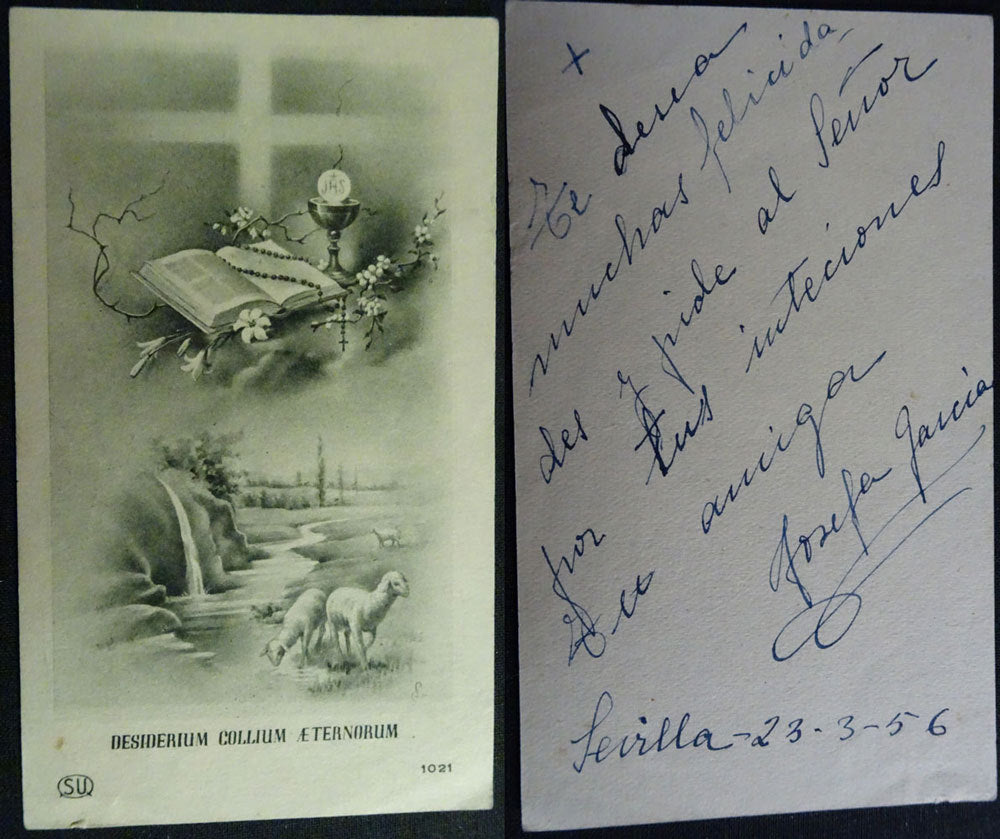 JHS
DESIDERIUM COLLIUM ÆTERNORUM
SU
1021
+
Te desea
muchas felicida
des y pide al Señor
por tus inteciones
Tu amiga
Josefa Garcia
Sevilla-23-3-56